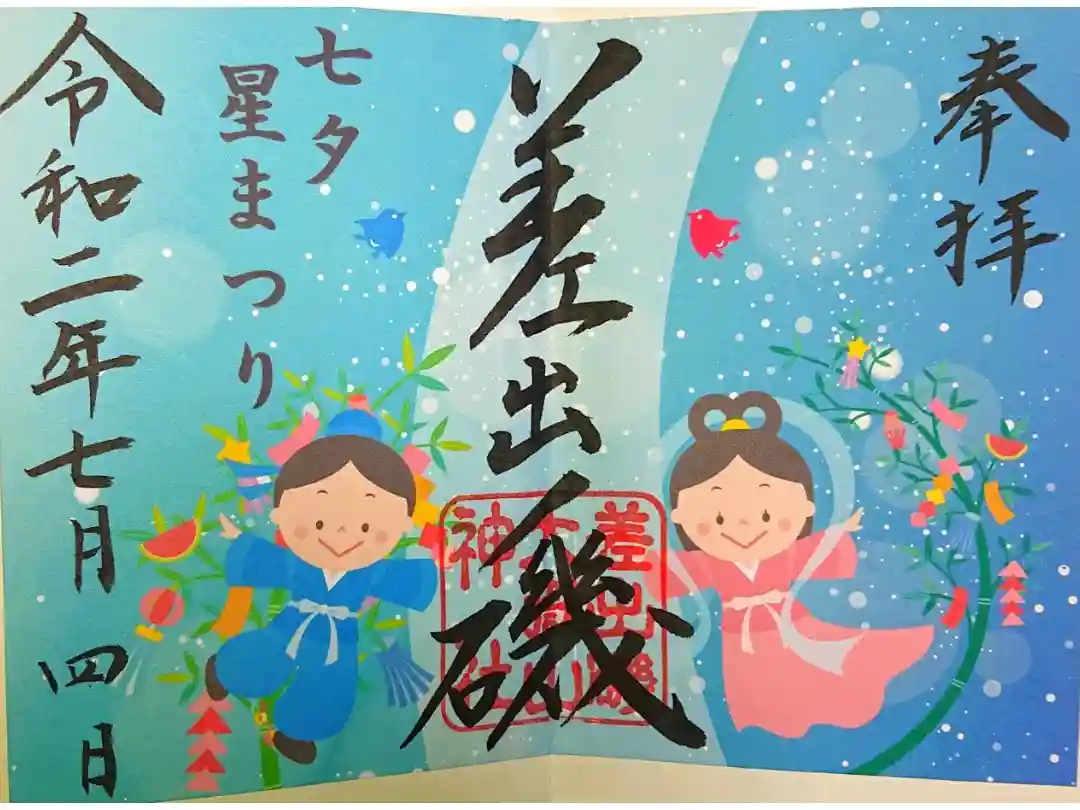 奉拝
差出ノ磯
差出磯
大嶽山
神社
七夕
星まつり
令和二年七月四日